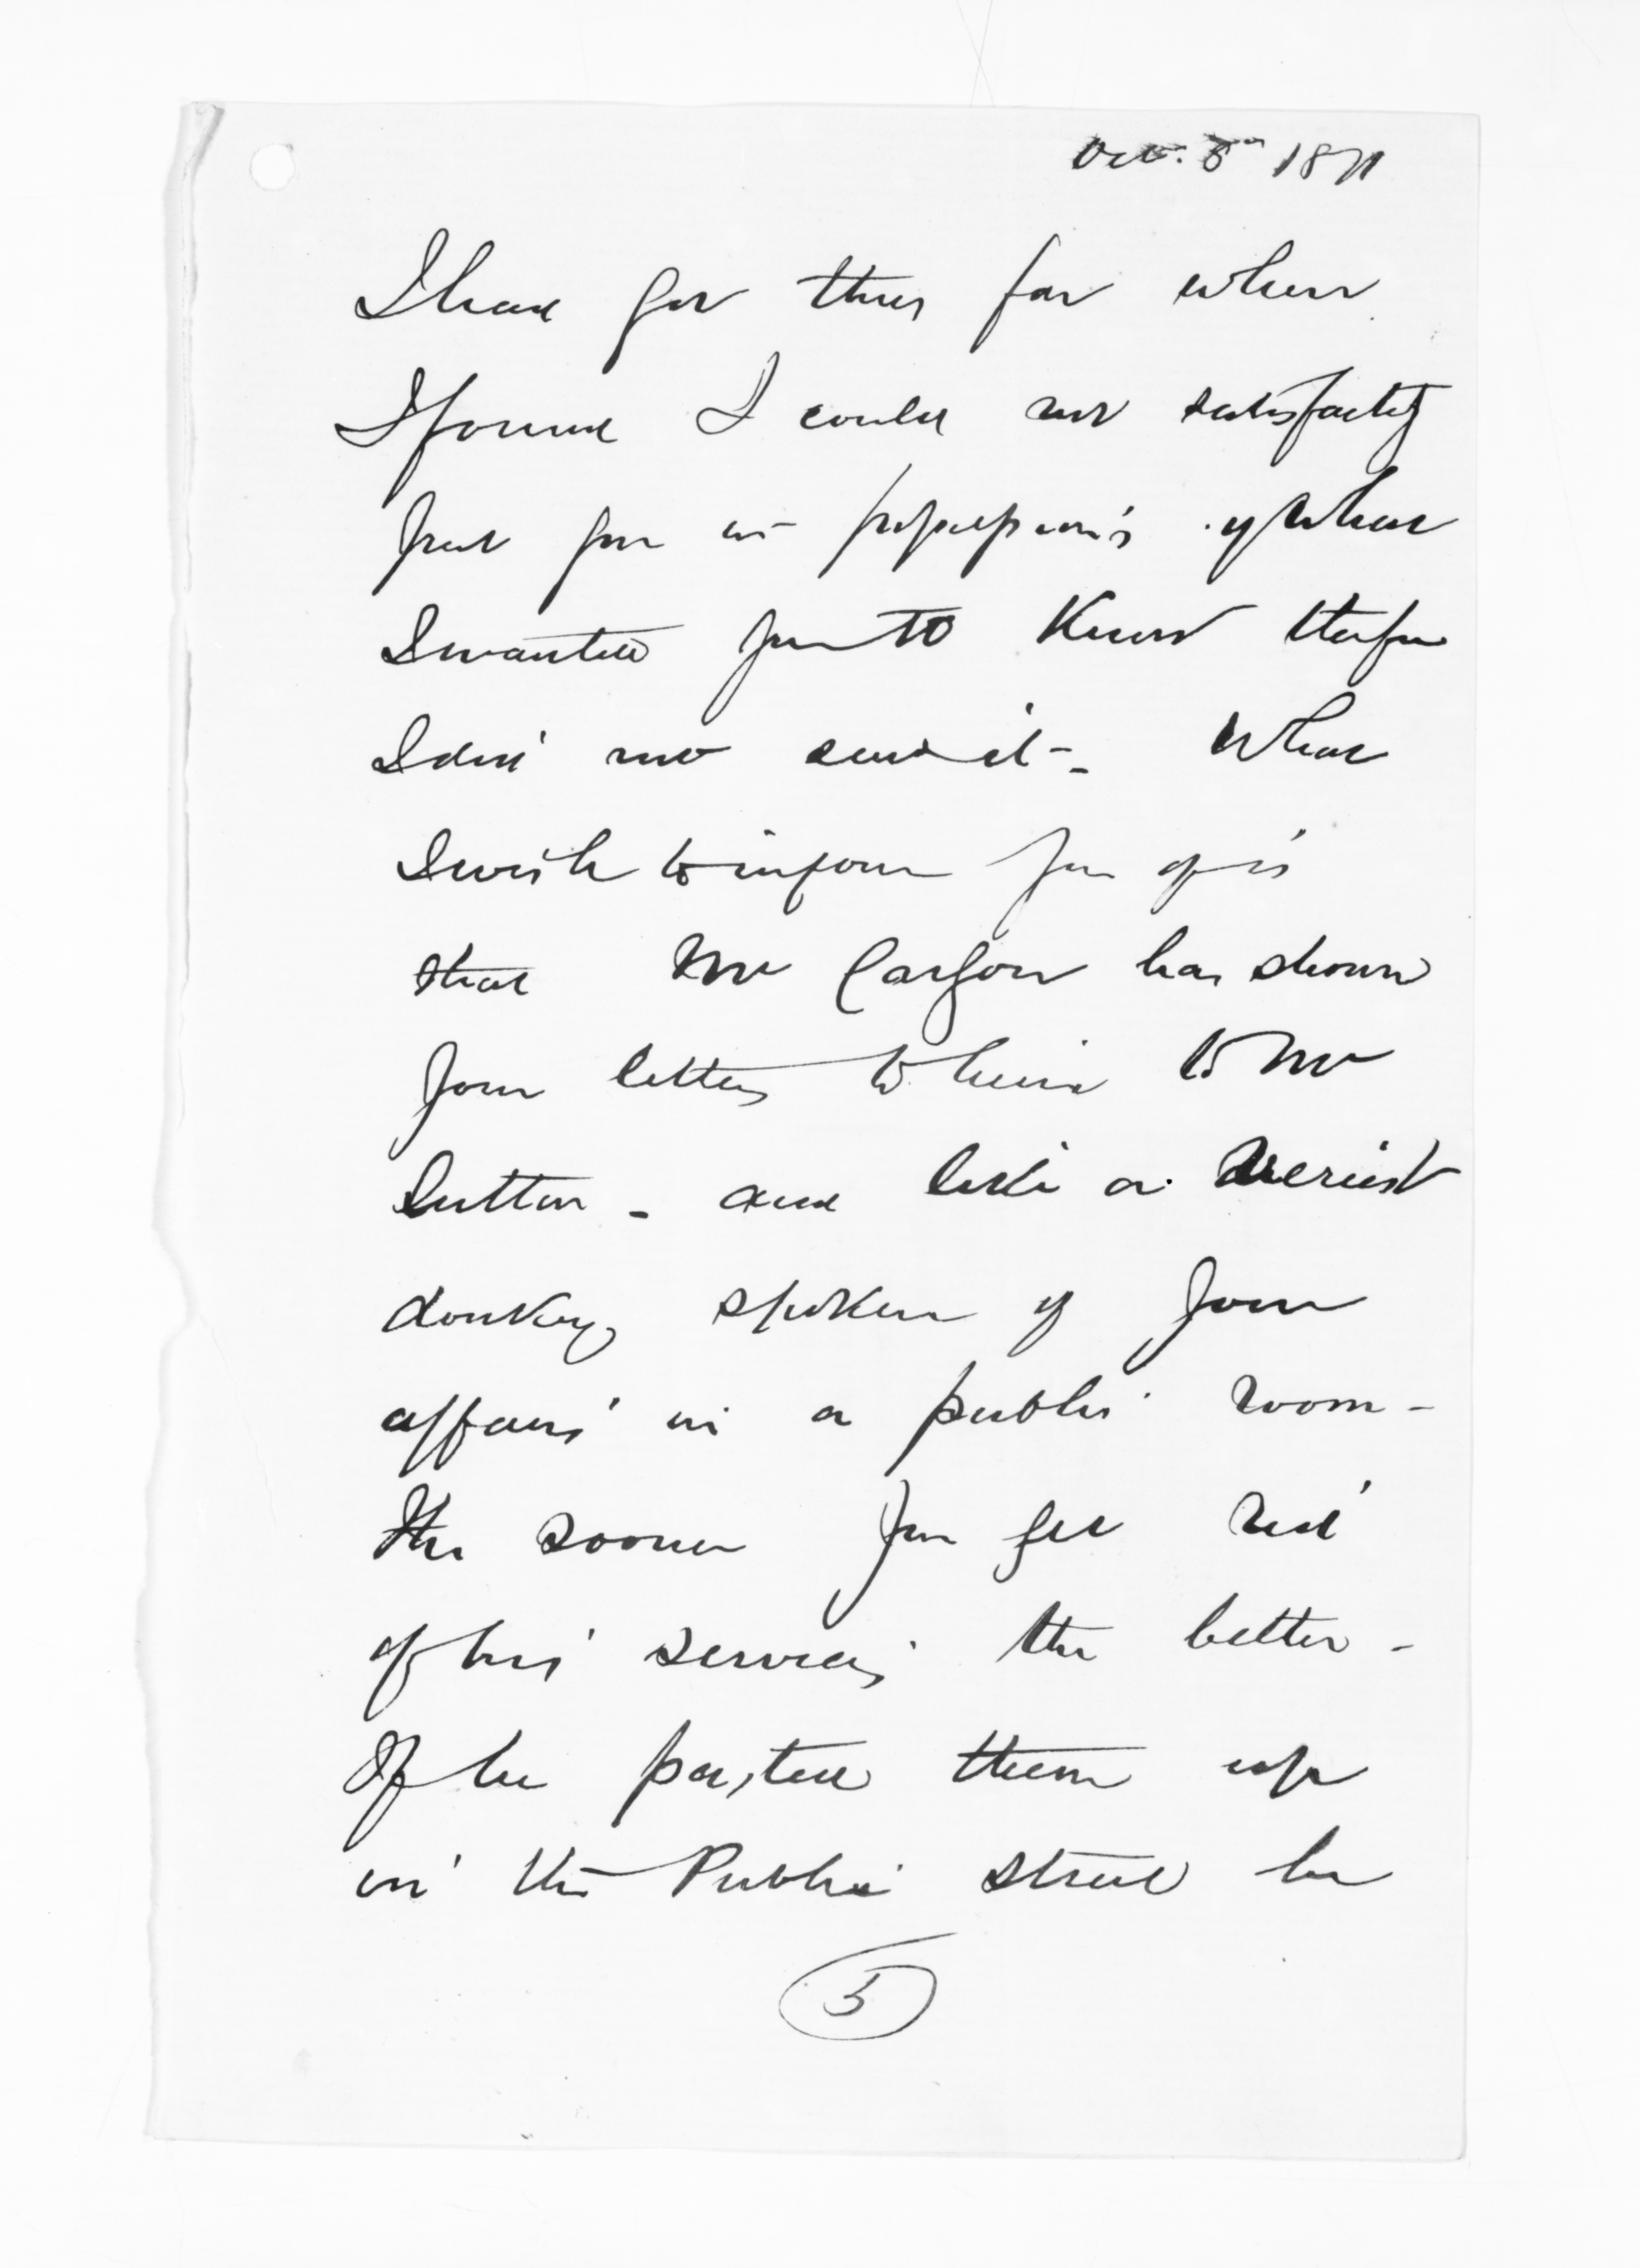 Oct. 5th 1871
I had got thus far when
I found I could not satisfactly
put you in possession of what
I wanted you to know therfor
I did not send it - What
I wish to inform you of is
that Mr has shown
your letters to him to Mr
Sutton - and like a veriest
donkey spoken of your
affairs in a public room -
the sooner you get rid
of his services the better -
If he pasted them up
in the Public street he